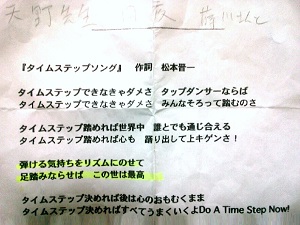 天野先生
『タイムステップソング』 作詞 松本晋一
タイムステップできなきゃダメさ タップダンサーならば
タイムステップできなきゃダメさ みんなそろって踏むのさ
タイムステップ踏めれば世界中 誰とでも通じ合える
タイムステップ踏めれば心も 踊り出して上キゲンさ!
弾ける気持ちをリズムにのせて
足踏みならせば この世は最高
タイムステップ決めれば後は心のおもむくまま
タイムステップ決めればすべてうまくいくよDo A Time Step Now!